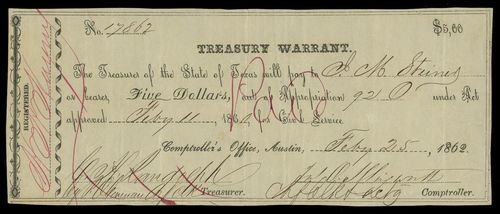 No. 17862 $5,00
TREASURY WARRANT.
The Treasurer of the State of Texas will pay to J. M. Steiner
or bearer, Five Dollars, out of Appropriation 920 under Act
approved Feby 11 1860, for Civil Service
Paid
Comptroller's Office, Austin, Feby 25, 1862.
C. H. Randolph
Treasurer. Comptroller.
REGISTERED.